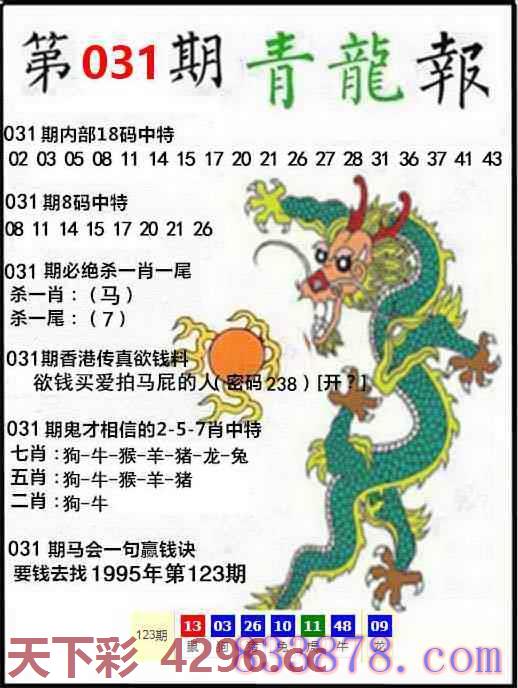 第031期青龍報
031期内部18码中特
02 03 05 08 11 14 15 17 20 21 26 27 28 31 36 37 41 43
031期8码中特
08 11 14 15 17 20 21 26
031 期必绝杀一肖一尾
杀一肖：（马）
杀一尾：（7）
031期香港传真欲钱料
欲钱买爱拍马屁的人(密码238）[开？]
031期鬼才相信的2-5-7肖中特
七肖：狗-牛-猴-羊-猪-龙-兔
五肖：狗-牛-猴-羊-猪
二肖：狗-牛
031 期马会一句赢钱诀
要钱去找1995年第123期
123期 13 03 26 10 11 48 09
鼠 狗 兔 虎 牛 龙
天下彩 4296.cc
833878.com